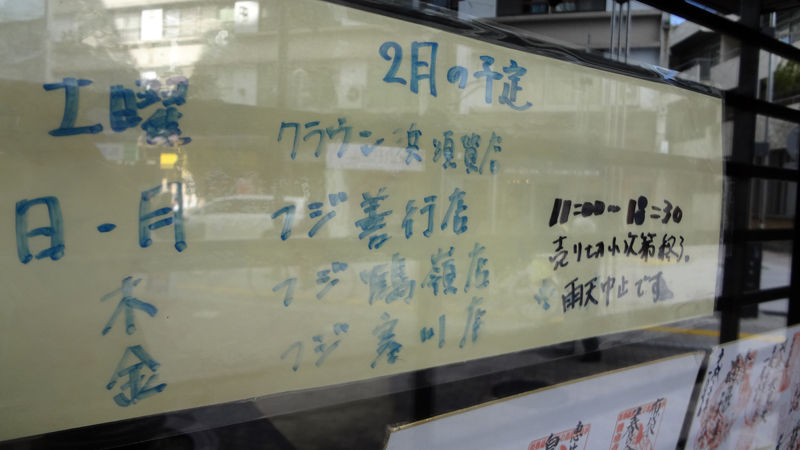 2月の予定
土曜 クラウン浜須賀店
日・月 フジ善行店
木 フジ鶴嶺店
金 フジ寒川店
11:00〜18:30
売り切れ次第終了。
※雨天中止です